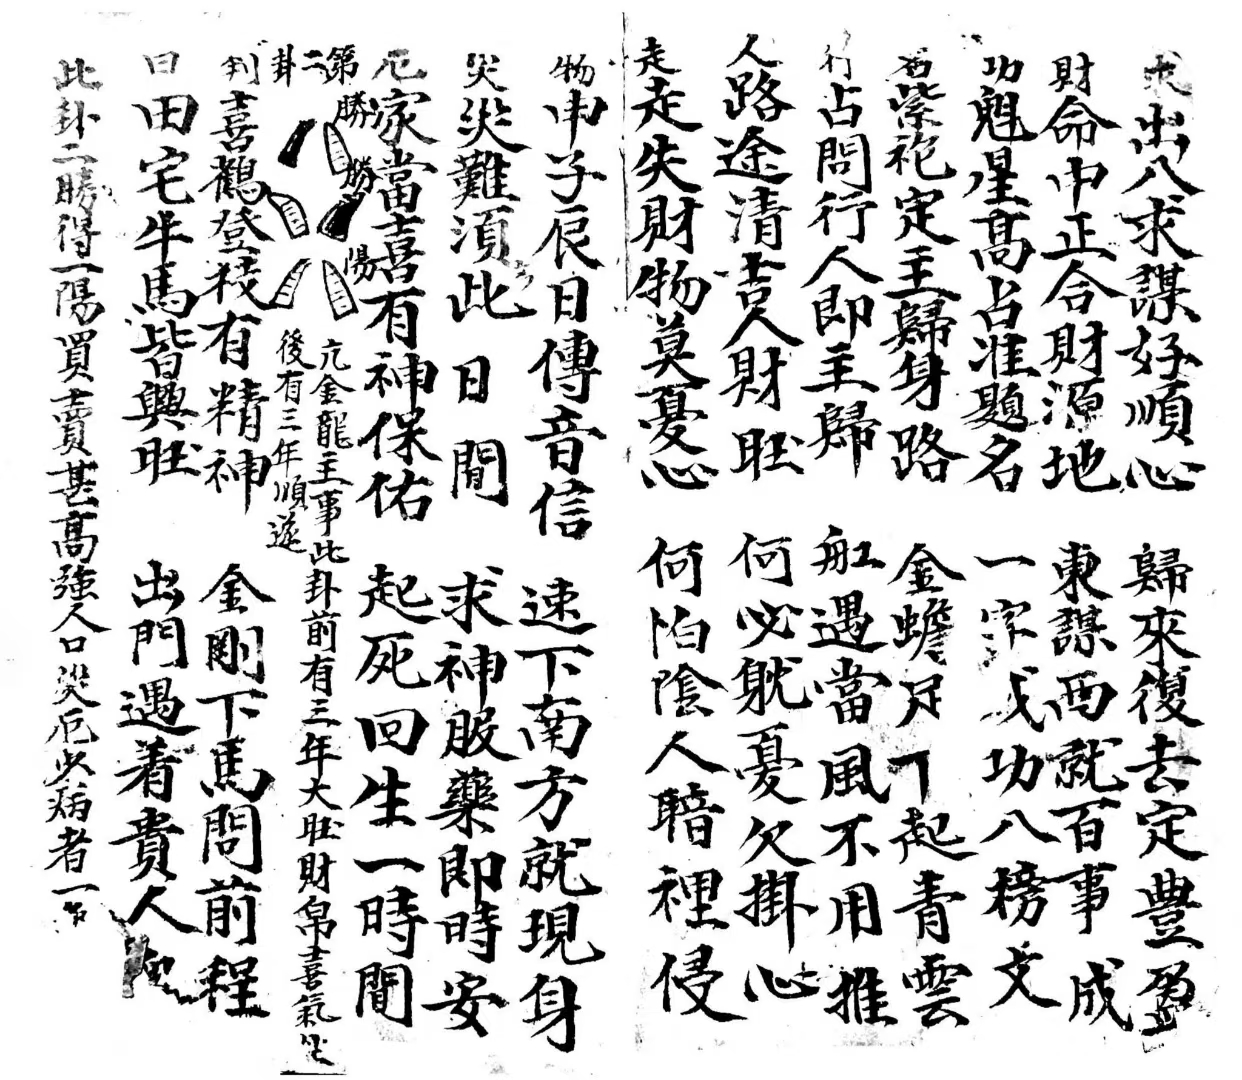 求出入求謀好順心 歸來復去定豊盈
財命中正合財源地 東謀西就百事成
功魁星高占准題名 一字成功入榜文
紫袍定主歸身路 金蟾足下起青雲
行占問行人即主歸 舡遇當風不用推
人路途清吉人財旺 何必躭憂欠掛心
走走失財物莫憂心 何怕陰人暗裡侵
物申子辰日傳音信 速下南方就現身
災災難須此日間 求神服藥即時安
厄家當喜有神保佑 起死回生一時間
第二卦
勝
勝
陽
亢金龍主事此卦前有三年大旺財帛喜氣
後有三年順遂
到喜鵲登枝有精神 金剛下馬問前程
日田宅牛馬皆興旺 出門遇着貴人
此卦二勝得一陽買賣甚高強人口災厄少病者一